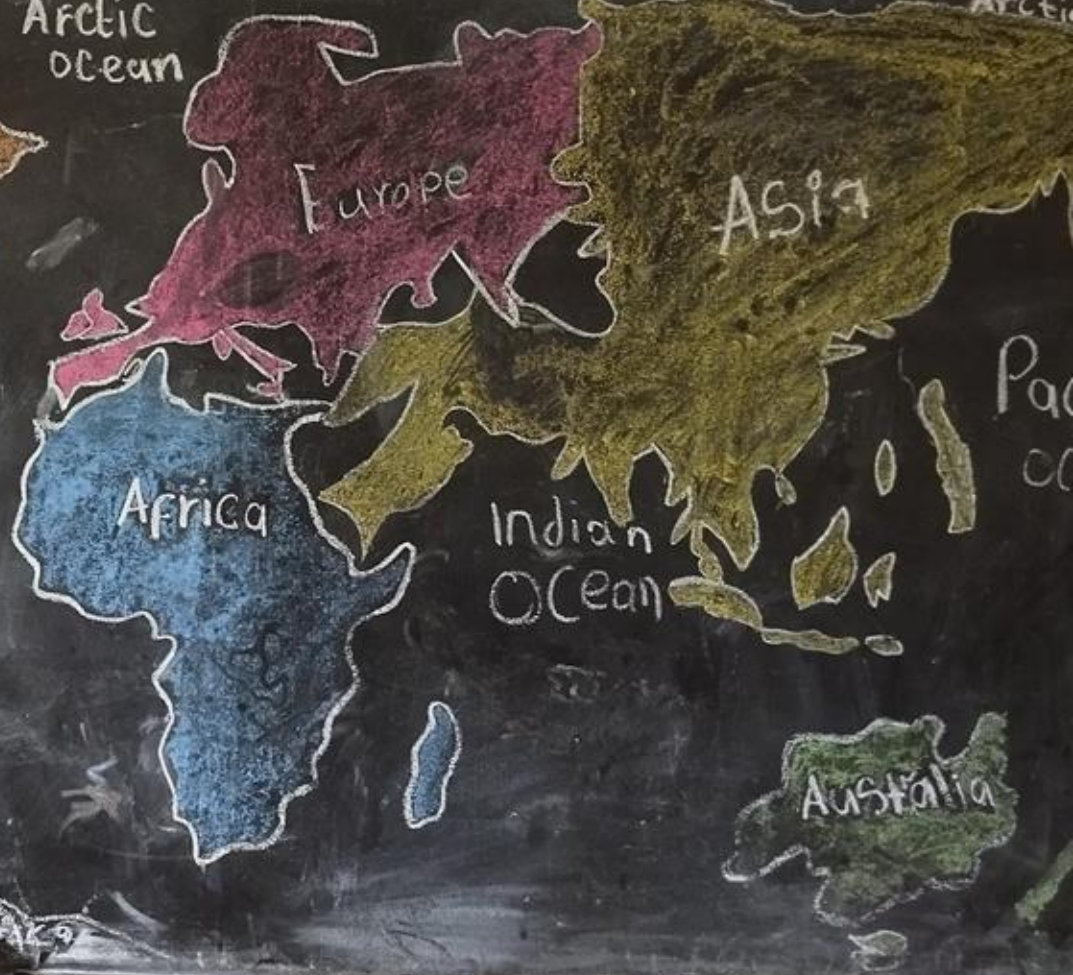 Arctic
ocean
Arctic
Europe
ASia
Pac
oc
Africa
Indian
Ocean
Australia